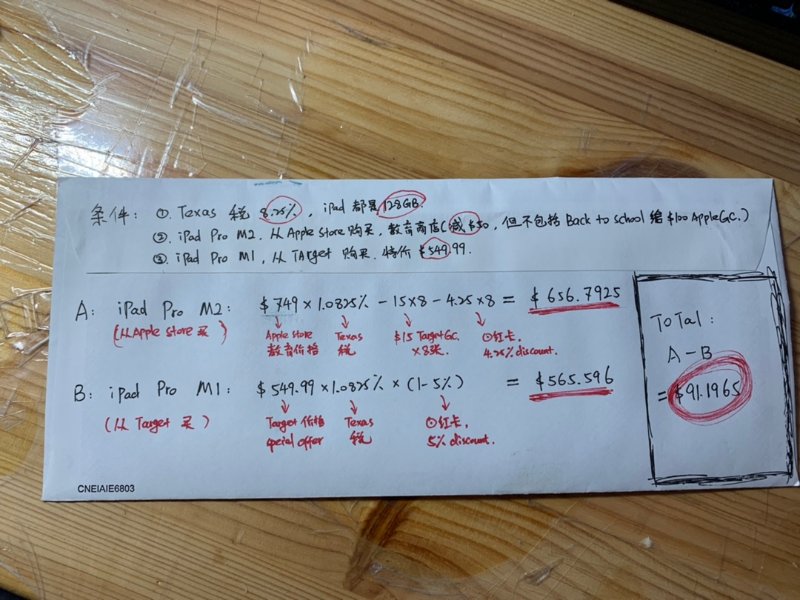 条件: ① Texas 税 8.25%, iPad 都是 128GB.
② iPad Pro M2. 从 Apple Store 购买, 教育商店(减 $50, 但不包括 Back to school 给 $100 Apple GC.)
③ iPad Pro M1, 从 TArget 购买. 特价 $549.99.
A: iPad Pro M2: $749 × 1.0825% - 15×8 - 4.25×8 = $656.7925
(从 Apple store 买)
Apple store 教育价格
Texas 税
$15 Target GC. × 8张.
⊙红卡, 4.25% discount.
B: iPad Pro M1: $549.99 × 1.0825% × (1-5%) = $565.596
(从 Target 买)
Target 价格 spcial offer
Texas 税
⊙红卡, 5% discount.
ToTal:
A-B
= $91.1965
CNEIAIE6803